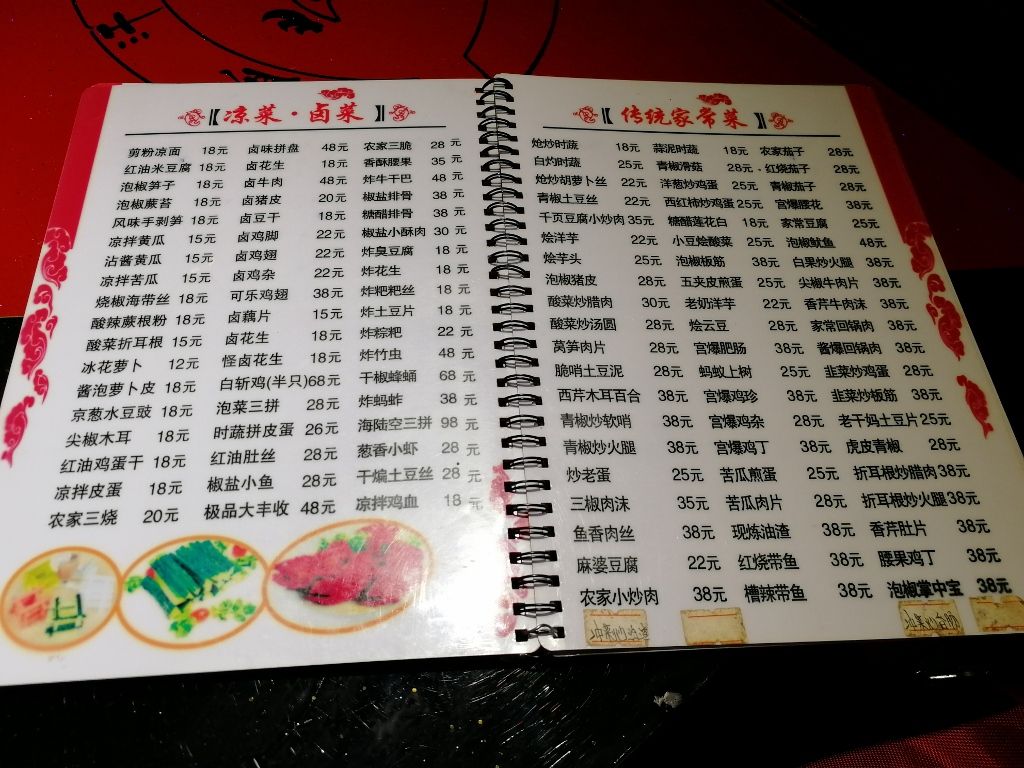 【凉菜·卤菜】
剪粉凉面 18元 卤味拼盘 48元 农家三脆 28元
红油米豆腐 18元 卤花生 18元 香酥腰果 35元
泡椒笋子 18元 卤牛肉 48元 炸牛干巴 48元
泡椒蕨苔 18元 卤猪皮 20元 椒盐排骨 38元
风味手剥笋 18元 卤豆干 18元 糖醋排骨 38元
凉拌黄瓜 15元 卤鸡脚 22元 椒盐小酥肉 30元
沾酱黄瓜 15元 卤鸡翅 22元 炸臭豆腐 18元
凉拌苦瓜 15元 卤鸡杂 22元 炸花生 18元
烧椒海带丝 18元 可乐鸡翅 38元 炸粑粑丝 18元
酸辣蕨根粉 18元 卤藕片 15元 炸土豆片 18元
酸菜折耳根 15元 卤花生 18元 炸粽粑 22元
冰花萝卜 12元 怪卤花生 18元 炸竹虫 48元
酱泡萝卜皮 18元 白斩鸡(半只)68元 干椒蜂蛹 68元
京葱水豆豉 18元 泡菜三拼 28元 炸蚂蚱 38元
尖椒木耳 18元 时蔬拼皮蛋 26元 海陆空三拼 98元
红油鸡蛋干 18元 红油肚丝 28元 葱香小虾 28元
凉拌皮蛋 18元 椒盐小鱼 28元 干煸土豆丝 28元
农家三烧 20元 极品大丰收 48元 凉拌鸡血 18元
【传统家常菜】
炝炒时蔬 18元 蒜泥时蔬 18元 农家茄子 28元
白灼时蔬 25元 青椒滑菇 28元 红烧茄子 28元
炝炒胡萝卜丝 22元 洋葱炒鸡蛋 25元 青椒茄子 28元
青椒土豆丝 22元 西红柿炒鸡蛋 25元 宫爆腰花 38元
千页豆腐小炒肉 35元 糖醋莲花白 18元 家常豆腐 25元
烩洋芋 22元 小豆烩酸菜 25元 泡椒鱿鱼 48元
烩芋头 25元 泡椒板筋 38元 白果炒火腿 38元
泡椒猪皮 28元 五夹皮煎蛋 25元 尖椒牛肉片 38元
酸菜炒腊肉 30元 老奶洋芋 22元 香芹牛肉沫 38元
酸菜炒汤圆 28元 烩云豆 28元 家常回锅肉 38元
莴笋肉片 28元 宫爆肥肠 38元 酱爆回锅肉 38元
脆哨土豆泥 28元 蚂蚁上树 25元 韭菜炒鸡蛋 28元
西芹木耳百合 38元 宫爆鸡珍 38元 韭菜炒板筋 38元
青椒炒软哨 38元 宫爆鸡杂 28元 老干妈土豆片 25元
青椒炒火腿 38元 宫爆鸡丁 38元 虎皮青椒 28元
炒老蛋 25元 苦瓜煎蛋 25元 折耳根炒腊肉 38元
三椒肉沫 35元 苦瓜肉片 28元 折耳根炒火腿 38元
鱼香肉丝 38元 现炼油渣 38元 香芹肚片 38元
麻婆豆腐 22元 红烧带鱼 38元 腰果鸡丁 38元
农家小炒肉 38元 槽辣带鱼 38元 泡椒掌中宝 38元